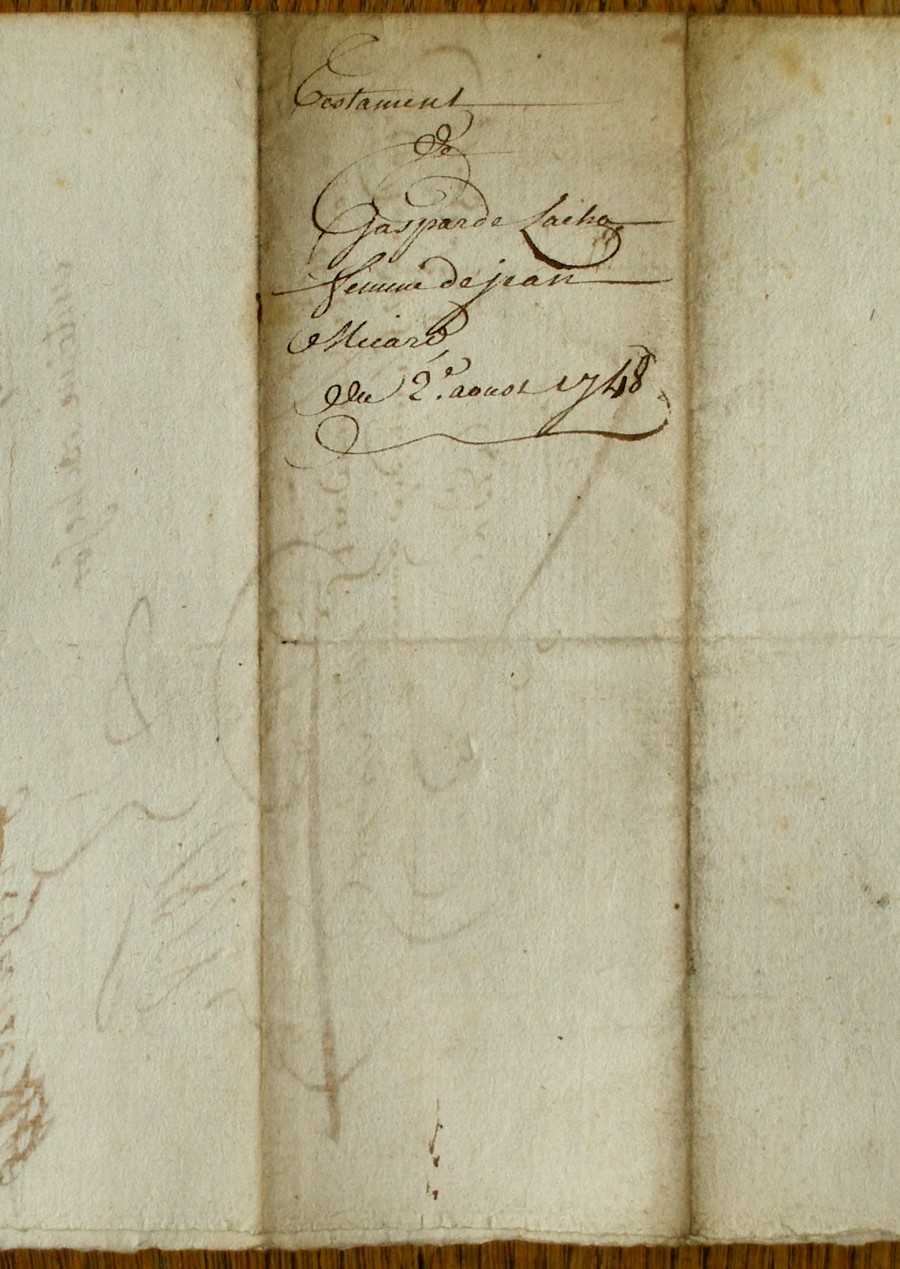 Testament
de
Gasparde Lacha
femme de jean
Micard
du 2e. aoust 1748